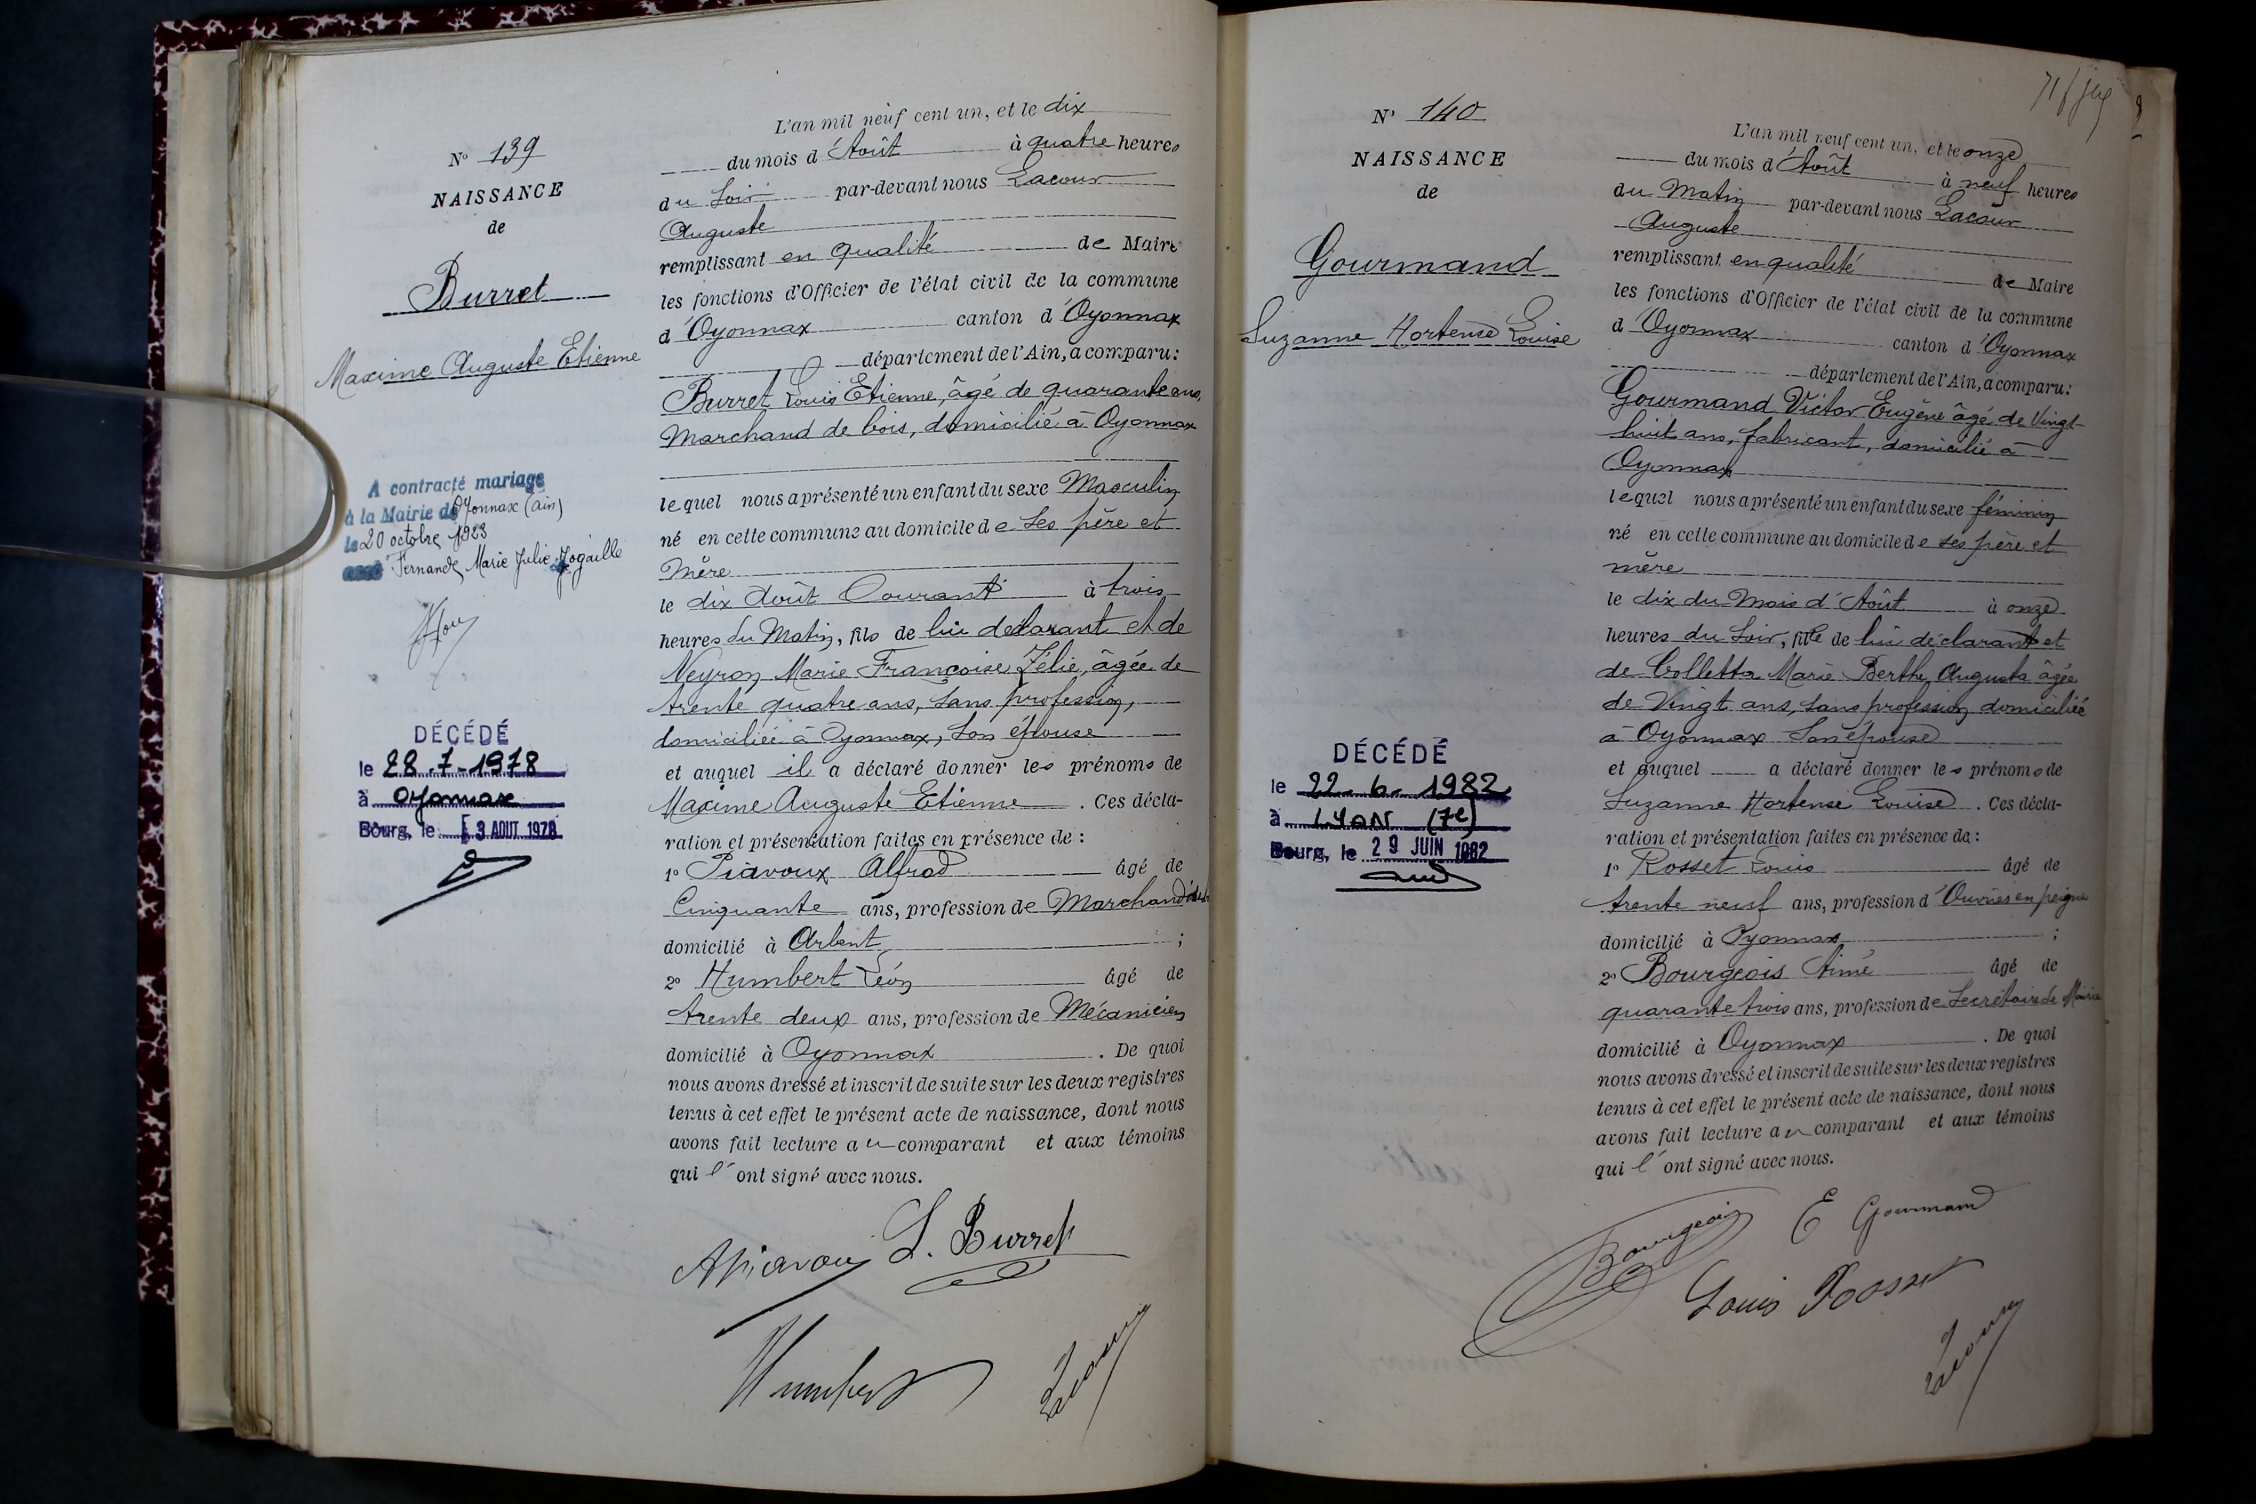 N° 139
NAISSANCE
de
Burret
Maxime Auguste Etienne
A contracté mariage
à la Mairie de Oyonnax (Ain)
le 20 octobre 1923
avec Fernande Marie Julie
DÉCÉDÉ
le 28.7-1978
à Oyonnax
Bourg, le 3 AOUT 1978
L'an mil neuf cent un, et le dix
du mois d'Août à quatre heures
du Soir par-devant nous Lacour
Auguste
remplissant en qualité de Maire
les fonctions d'Officier de l'état civil de la commune
d'Oyonnax canton d'Oyonnax
département de l'Ain, a comparu:
Burret Louis Etienne, âgé de quarante ans,
Marchand de bois, domicilié à Oyonnax
lequel nous a présenté un enfant du sexe Masculin
né en cette commune au domicile de ses père et
Mère
le dix Août Courant à trois
heures du Matin, fils de lui déclarant et de
Neyron Marie Françoise Zélie, âgée de
trente quatre ans, sans profession,
domiciliée à Oyonnax, son épouse
et auquel il a déclaré donner les prénoms de
Maxime Auguste Etienne. Ces décla-
ration et présentation faites en présence de:
1° Piavoux Alfred âgé de
Cinquante ans, profession de Marchand
domicilié à Arbent ;
2° Humbert Léon âgé de
trente deux ans, profession de Mécanicien
domicilié à Oyonnax. De quoi
nous avons dressé et inscrit de suite sur les deux registres
tenus à cet effet le présent acte de naissance, dont nous
avons fait lecture au comparant et aux témoins
qui l'ont signé avec nous.
APiavoux L. Burret
Humbert Lacour
N° 140
NAISSANCE
de
Gourmand
Suzanne Hortense Louise
DÉCÉDÉ
le 22-6-1982
à LYON (7e)
Bourg, le 29 JUIN 1982
L'an mil neuf cent un, et le onze
du mois d'Août à neuf heures
du Matin par-devant nous Lacour
Auguste
remplissant en qualité de Maire
les fonctions d'Officier de l'état civil de la commune
d'Oyonnax canton d'Oyonnax
département de l'Ain, a comparu:
Gourmand Victor Eugène âgé de Vingt-
huit ans, fabricant, domicilié à
Oyonnax
lequel nous a présenté un enfant du sexe féminin
né en cette commune au domicile de ses père et
mère
le dix du Mois d'Août à onze
heures du Soir, fille de lui déclarant et
de Colletta Marie Berthe Augusta âgée
de Vingt ans, sans profession domiciliée
à Oyonnax Son épouse
et auquel a déclaré donner les prénoms de
Suzanne Hortense Louise. Ces décla-
ration et présentation faites en présence de:
1° Rosset Louis âgé de
trente neuf ans, profession d'Ouvrier en peigne
domicilié à Oyonnax ;
2° Bourgeois Aimé âgé de
quarante trois ans, profession de Secrétaire de Mairie
domicilié à Oyonnax. De quoi
nous avons dressé et inscrit de suite sur les deux registres
tenus à cet effet le présent acte de naissance, dont nous
avons fait lecture au comparant et aux témoins
qui l'ont signé avec nous.
Bourgeois E Gourmand
Louis Rosset
Lacour